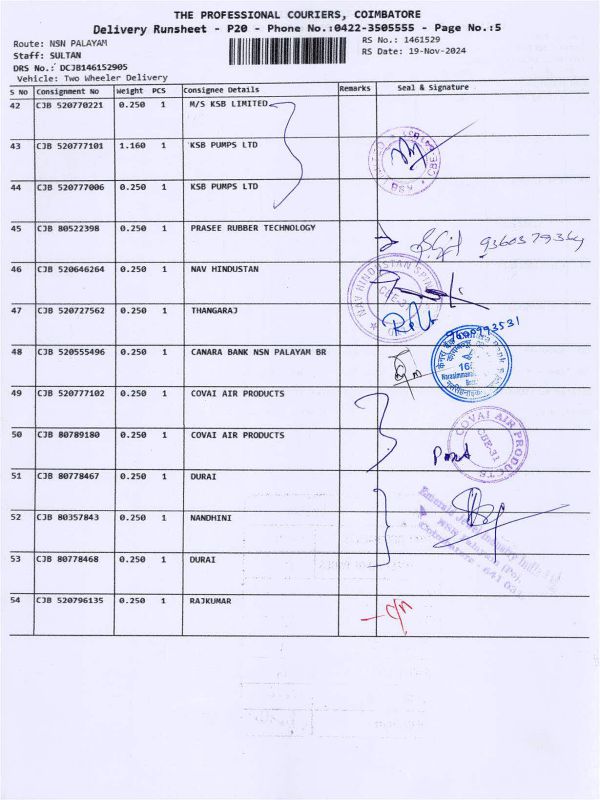 THE PROFESSIONAL COURIERS, COIMBATORE
Delivery Runsheet - P20 - Phone No.:0422-3505555 - Page No.:5
Route: NSN PALAYAM
RS No.: 1461529
Staff: SULTAN
RS Date: 19-Nov-2024
DRS No.: DCJB146152905
Vehicle: Two Wheeler Delivery
S No Consignment No Weight PCS Consignee Details Remarks Seal & Signature
42 CJB 520770221 0.250 1 M/S KSB LIMITED
43 CJB 520777101 1.160 1 KSB PUMPS LTD
44 CJB 520777006 0.250 1 KSB PUMPS LTD
45 CJB 80522398 0.250 1 PRASEE RUBBER TECHNOLOGY
46 CJB 520646264 0.250 1 NAV HINDUSTAN
NAV HINDUSTAN
47 CJB 520727562 0.250 1 THANGARAJ
48 CJB 520555496 0.250 1 CANARA BANK NSN PALAYAM BR
49 CJB 520777102 0.250 1 COVAI AIR PRODUCTS
50 CJB 80789180 0.250 1 COVAI AIR PRODUCTS
COVAI AIR PRODUCTS
CBE-31
51 CJB 80778467 0.250 1 DURAI
52 CJB 80357843 0.250 1 NANDHINI
53 CJB 80778468 0.250 1 DURAI
54 CJB 520796135 0.250 1 RAJKUMAR